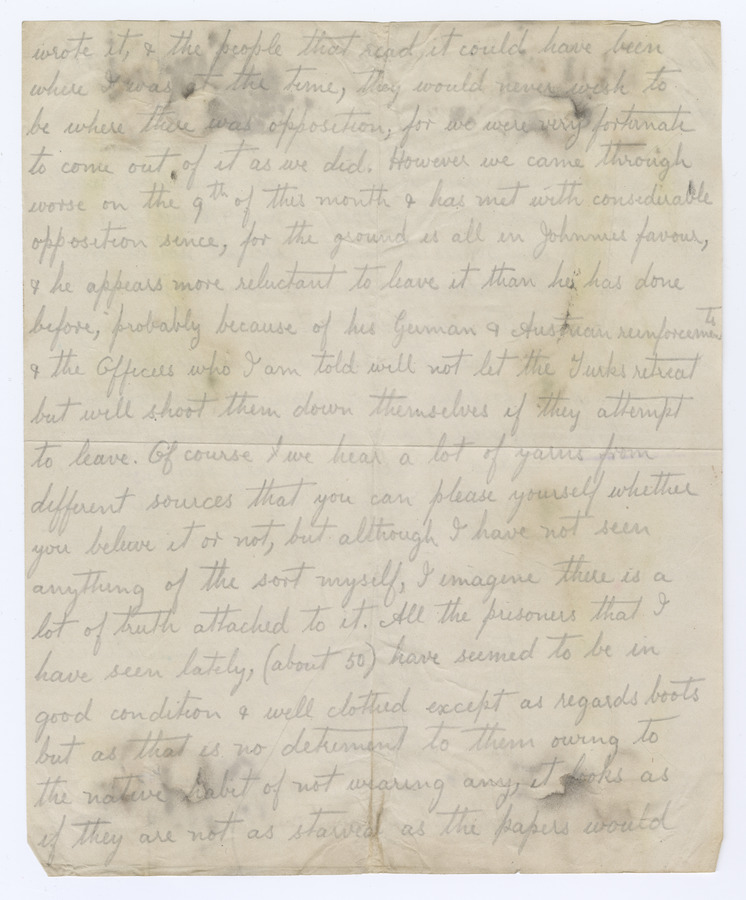 wrote it, & the people that read it could have been
where I was at the time, they would never wish to
be where there was opposition, for we were very fortunate
to come out of it as we did. However we came through
worse on the 9th of this month & has met with considerable
opposition since, for the ground is all in Johnnies favour,
& he appears more reluctant to leave it than he has done
before, probably because of his German & Austrian reinforcements
& the Officers who I am told will not let the Turks retreat
but will shoot them down themselves if they attempt
to leave. Of course we hear a lot of yarns from
different sources that you can please yourself whether
you believe it or not, but although I have not seen
anything of the sort myself, I imagine there is a
lot of truth attached to it. All the prisoners that I
have seen lately, (about 50) have seemed to be in
good condition & well clothed except as regards boots
but as that is no detriment to them owing to
the native habit of not wearing any, it looks as
if they are not as starved as the papers would